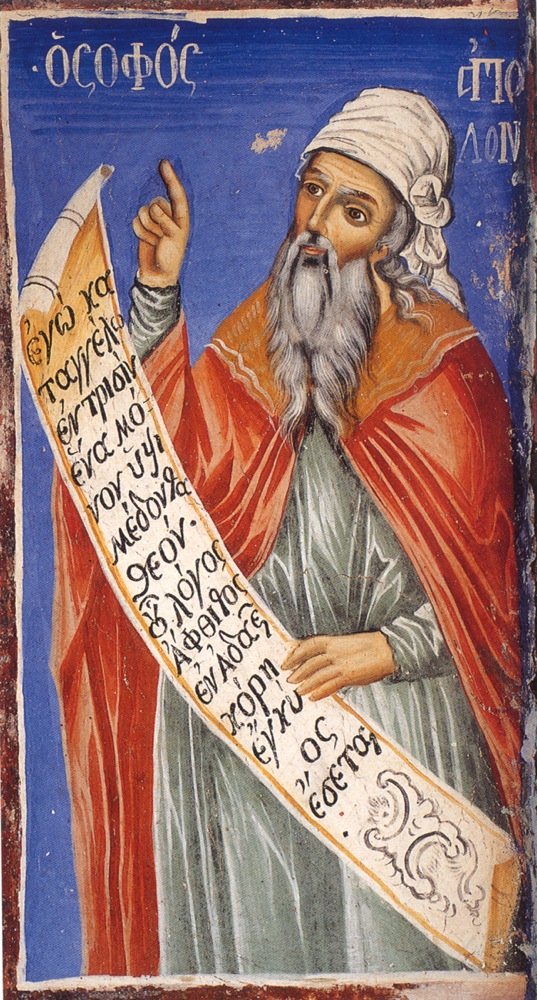 ·ὁσοφός
ἀπο
λον
ἐγώ κα
ταγγέλω
ἐν τρισίν
ἕνα μό-
νον ὑψι
μέδοντα
θεόν.
οὗ λόγος
ἄφθιτος
ἐν ἀδαεῖ
κόρη
ἔγκυ
ος
ἔσεται.